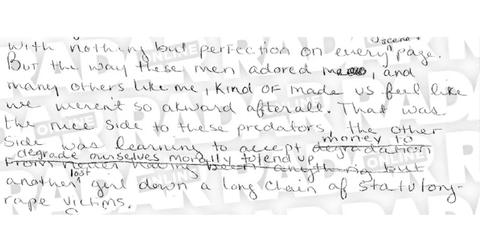 scene
with nothing but perfection on every page.
But the way these men adored me, and
many others like me, kind of made us feel like
we weren't so akward afterall. That was
the nice side to these predators, the other
money to
side was learning to accept degradation
degrade ourselves morally to end up
from never having been anything but
lost
another girl down a long chain of statutory-
rape victims.